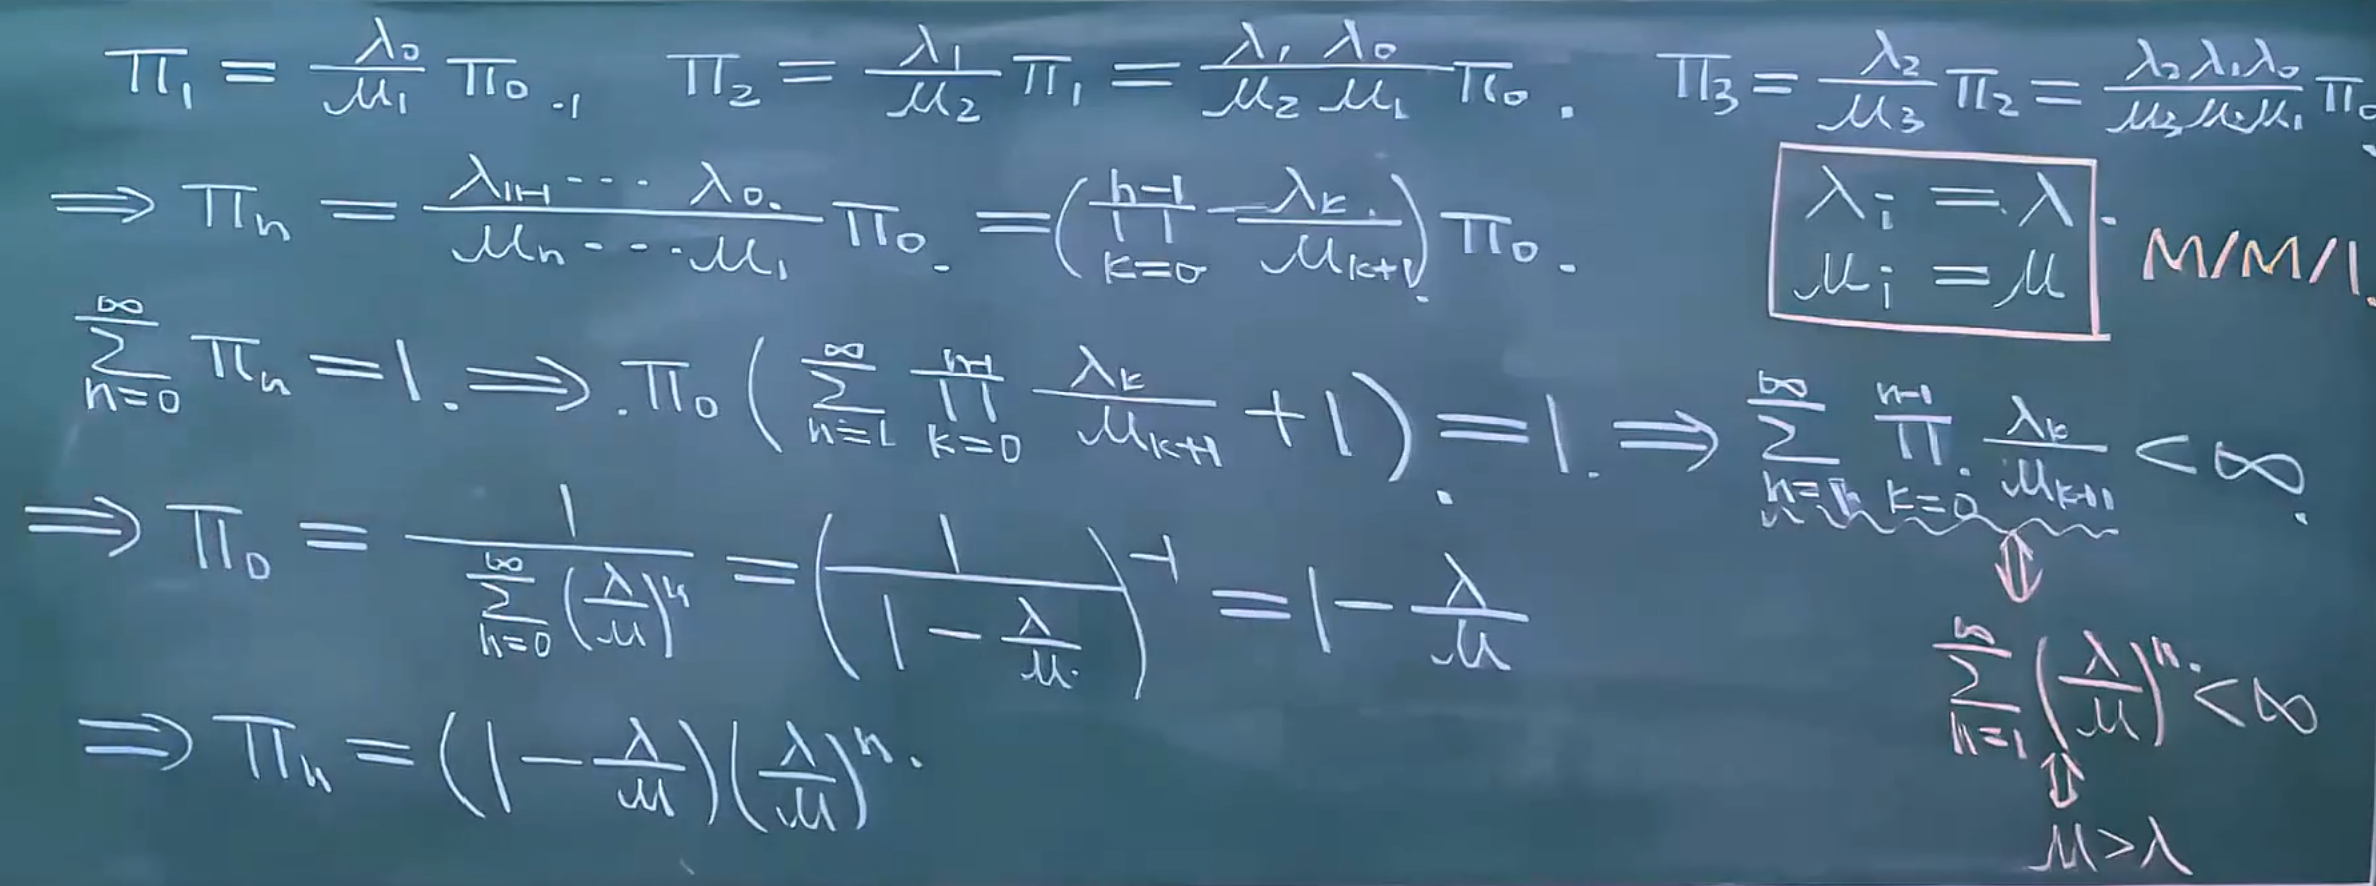 π₁ = λ₀/μ₁ π₀ , π₂ = λ₁/μ₂ π₁ = λ₁ λ₀/μ₂ μ₁ π₀ . π₃ = λ₂/μ₃ π₂ = λ₂λ₁λ₀/μ₃μ₂μ₁ π₀ .
⇒ πₙ = λₙ₋₁ ··· λ₀/μₙ ··· μ₁ π₀ . = (∏_{k=0}^{n-1} λ_k/μ_{k+1}) π₀ .
λᵢ = λ .
μᵢ = μ
M/M/1.
∑_{n=0}^{∞} πₙ = 1. ⇒ π₀ (∑_{n=1}^{∞} ∏_{k=0}^{n-1} λ_k/μ_{k+1} + 1) = 1. ⇒ ∑_{n=1}^{∞} ∏_{k=0}^{n-1} λ_k/μ_{k+1} < ∞.
⇕
⇒ π₀ = 1/∑_{n=0}^{∞} (λ/μ)ⁿ = (1/(1 - λ/μ))⁻¹ = 1 - λ/μ
∑_{n=1}^{∞} (λ/μ)ⁿ < ∞
⇕
⇒ πₙ = (1 - λ/μ)(λ/μ)ⁿ.
μ > λ